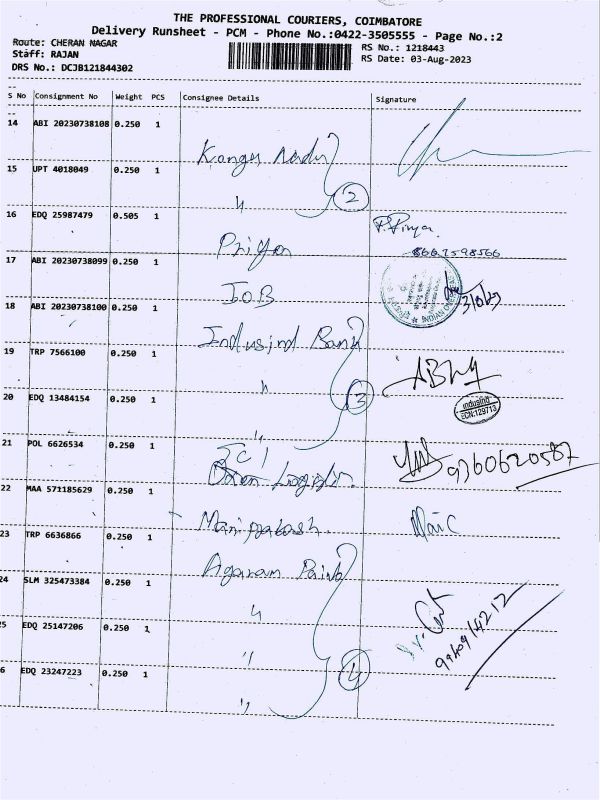 THE PROFESSIONAL COURIERS, COIMBATORE
Delivery Runsheet - PCM - Phone No.:0422-3505555 - Page No.:2
Route: CHERAN NAGAR
RS No.: 1218443
Staff: RAJAN
RS Date: 03-Aug-2023
DRS No.: DCJB121844302
S No Consignment No Weight PCS Consignee Details Signature
14 ABI 20230738108 0.250 1
15 UPT 4018049 0.250 1 〃
2
16 EDQ 25987479 0.505 1
17 ABI 20230738099 0.250 1 IOB
3/8/23
18 ABI 20230738100 0.250 1 Indusind Bank
19 TRP 7566100 0.250 1 〃
20 EDQ 13484154 0.250 1 〃
3
IndusInd
ECN:129713
21 POL 6626534 0.250 1
9360620587
22 MAA 571185629 0.250 1 Maniprakash
23 TRP 6636866 0.250 1 Agaram Paints
24 SLM 325473384 0.250 1 〃
5 EDQ 25147206 0.250 1 〃
6 EDQ 23247223 0.250 1 〃
4